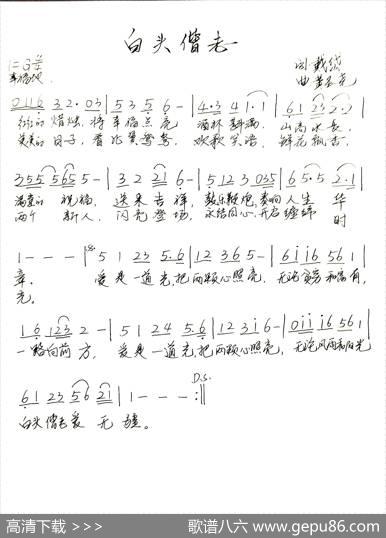 白头偕老
1=G 4/4
幸福地
词 戴斌
曲
0116 32·03 | 535 6 - | 4·3 41·1 | 61 23 2· |
红红的 蜡烛, 将 幸福点亮 酒杯 斟满, 山高水长,
美美的 日子, 看比翼鸳鸯, 欢歌笑语, 鲜花飘香,
355 565 5 - | 32 21 6 - | 5 123 035 | 65·5 2·1 |
满堂的 祝福, 送来吉祥, 鼓乐鞭炮, 奏响人生 华
两个 新人, 闪亮登场, 永结同心, 开启缠绵 时
1 - - - | 51 23 5·6 | 12 365 - | 61 16 561 |
章. 爱是一道光, 把两颗心照亮, 无论贫穷和富有,
光.
16 123 2 - | 51 24 5·6 | 12 316 - | 011 16 561 |
一路向前方, 爱是一道光, 把两颗心照亮, 无论风雨和阳光
D.S.
61 23 56 21 | 1 - - - :||
白头偕老爱无疆。
高清下载 >>>
歌谱八六 www.gepu86.com